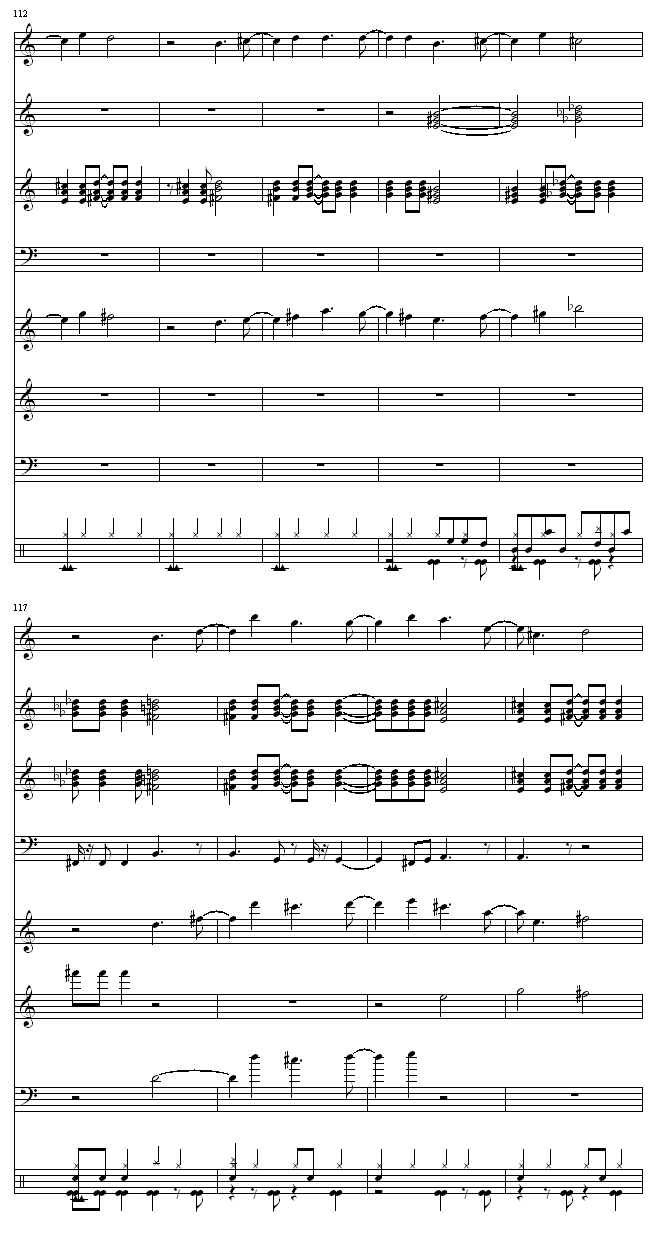 112
117